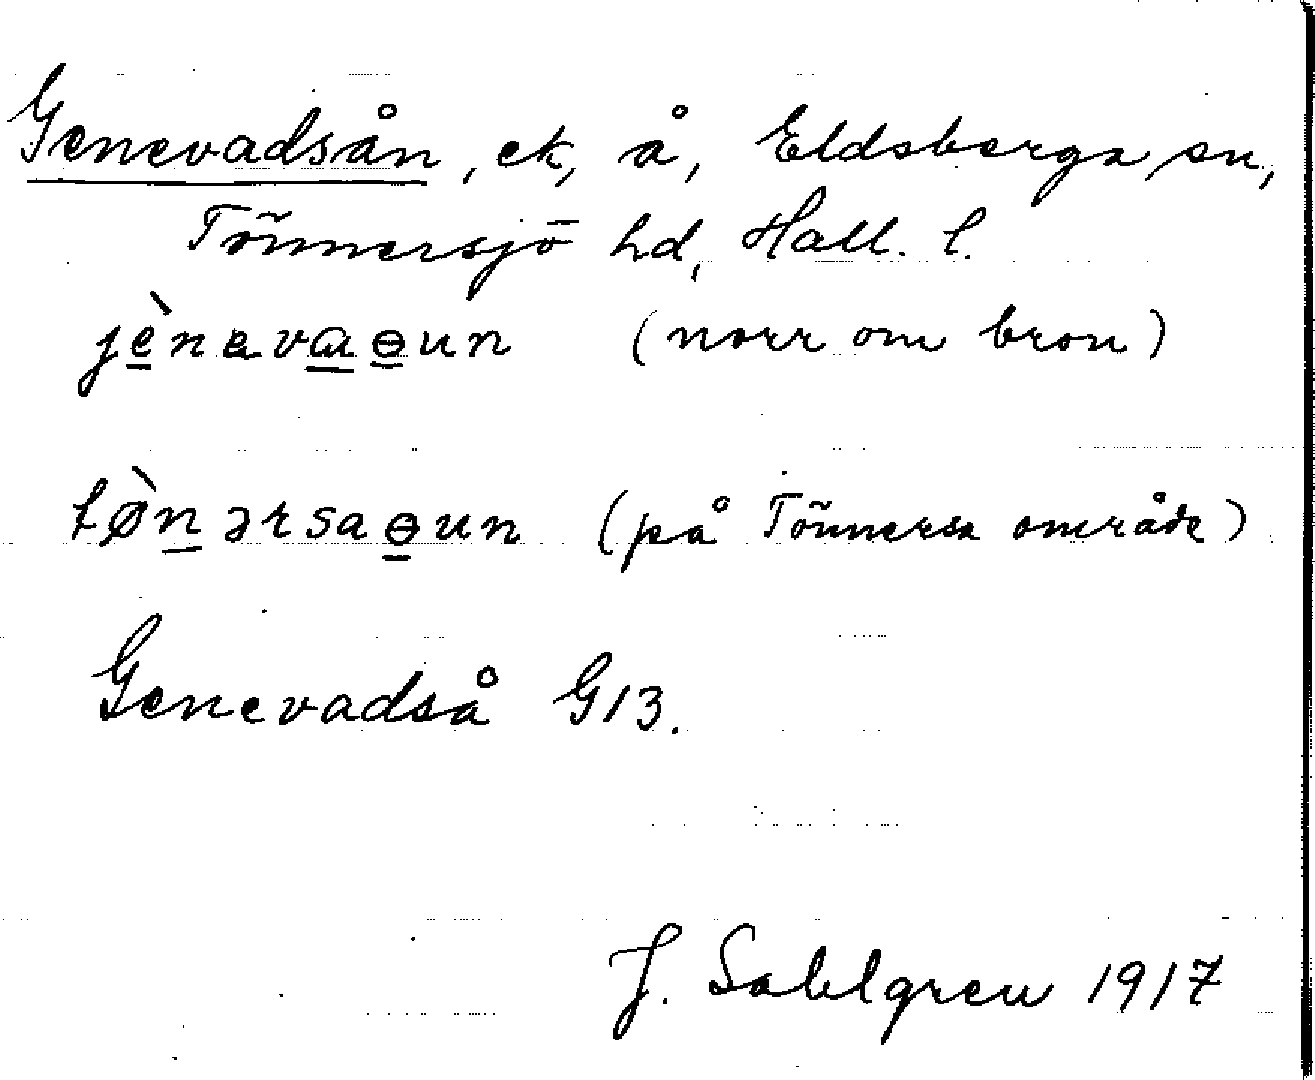 Genevadsån, ek, å, Eldsberga sn,
Tönnersjö hd, Hall. l.
jènavaɵun (norr om bron)
tø̀nərsaɵun (på Tönnersa område)
Genevadså G13.
J. Sahlgren 1917